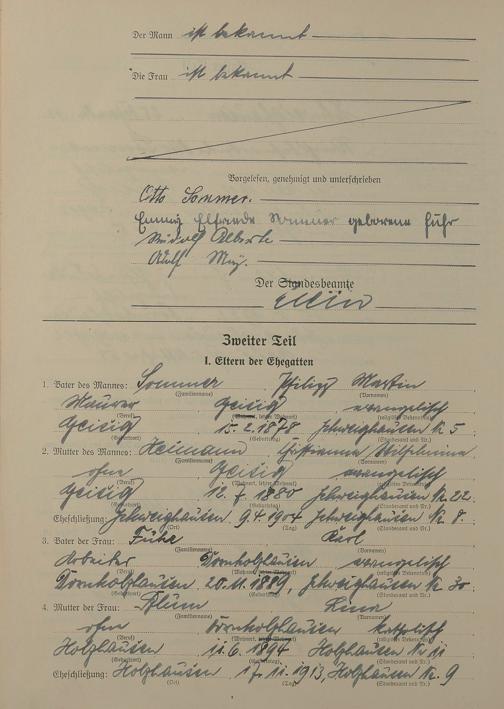 Der Mann ist bekannt
Die Frau ist bekannt
Vorgelesen, genehmigt und unterschrieben
Otto Sommer.
Emmy Elfriede Sommer geborene Führ
Rudolf Alberti
Adolf May.
Der Standesbeamte
Zweiter Teil
I. Eltern der Ehegatten
1. Vater des Mannes: Sommer Philipp Martin
(Familienname) (Vornamen)
Maurer Geisig evangelisch
(Beruf) (Wohnort, letzter Wohnort) (religiöses Bekenntnis)
Geisig 15.2.1878 Schweighausen Nr. 5
(Geburtsort) (Geburtstag) (Standesamt und Nr.)
2. Mutter des Mannes: Heimann Wilhelmine
(Familienname) (Vornamen)
ohne Geisig evangelisch
(Beruf) (Wohnort, letzter Wohnort) (religiöses Bekenntnis)
Geisig 1880 Schweighausen Nr. 22
(Geburtsort) (Geburtstag) (Standesamt und Nr.)
Eheschließung: Schweighausen 9.4.1904 Schweighausen Nr. 8
(Ort) (Tag) (Standesamt und Nr.)
3. Vater der Frau: Führ Karl
(Familienname) (Vornamen)
Arbeiter Dornholzhausen evangelisch
(Beruf) (Wohnort, letzter Wohnort) (religiöses Bekenntnis)
Dornholzhausen 20.11.1889, Schweighausen Nr. 30
(Geburtsort) (Geburtstag) (Standesamt und Nr.)
4. Mutter der Frau: Pflüm Lina
(Familienname) (Vornamen)
ohne Dornholzhausen katholisch
(Beruf) (Wohnort, letzter Wohnort) (religiöses Bekenntnis)
Holzhausen 11.6.1894 Holzhausen Nr. 11
(Geburtsort) (Geburtstag) (Standesamt und Nr.)
Eheschließung: Holzhausen 11.1913, Holzhausen Nr. 9
(Ort) (Tag) (Standesamt und Nr.)